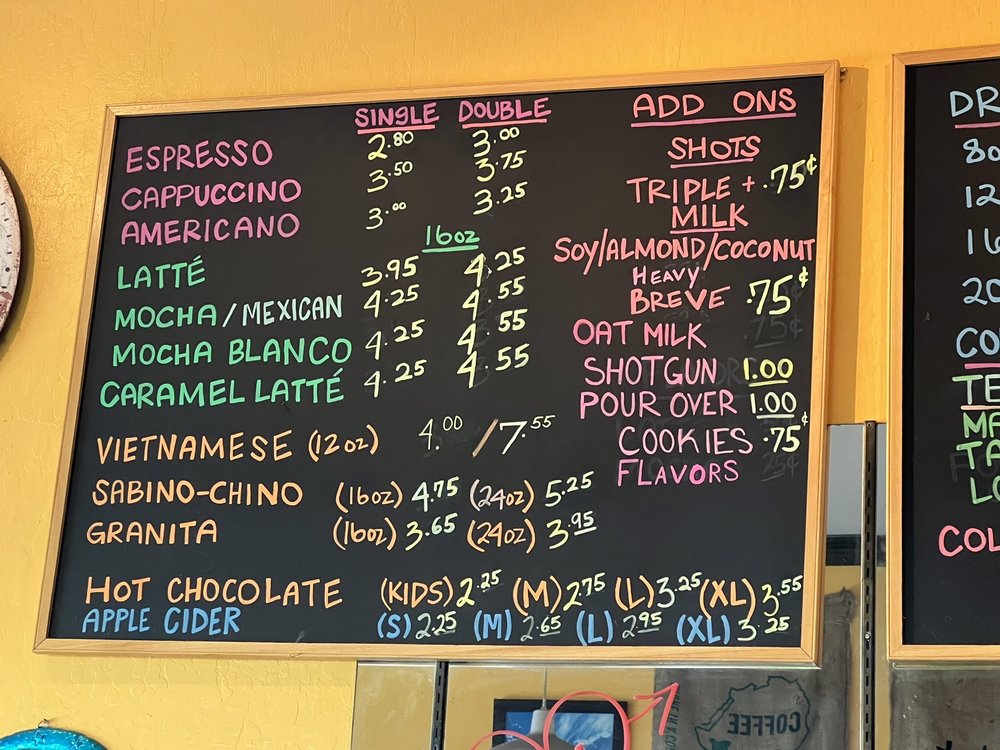 SINGLE DOUBLE
ESPRESSO 2.80 3.00
CAPPUCCINO 3.50 3.75
AMERICANO 3.00 3.25
16oz
LATTÉ 3.95 4.25
MOCHA/MEXICAN 4.25 4.55
MOCHA BLANCO 4.25 4.55
CARAMEL LATTÉ 4.25 4.55
VIETNAMESE (12oz) 4.00 /7.55
SABINO-CHINO (16oz) 4.75 (24oz) 5.25
GRANITA (16oz) 3.65 (24oz) 3.95
HOT CHOCOLATE (KIDS) 2.25 (M) 2.75 (L) 3.25 (XL) 3.55
APPLE CIDER (S) 2.25 (M) 2.65 (L) 2.95 (XL) 3.25
ADD ONS
SHOTS
TRIPLE + .75¢
MILK
SOY/ALMOND/COCONUT
HEAVY
BREVE .75¢
OAT MILK
SHOTGUN 1.00
POUR OVER 1.00
COOKIES .75¢
FLAVORS
DR
80
12
16
20
CO
TE
MA
TA
LO
COL
COFFEE